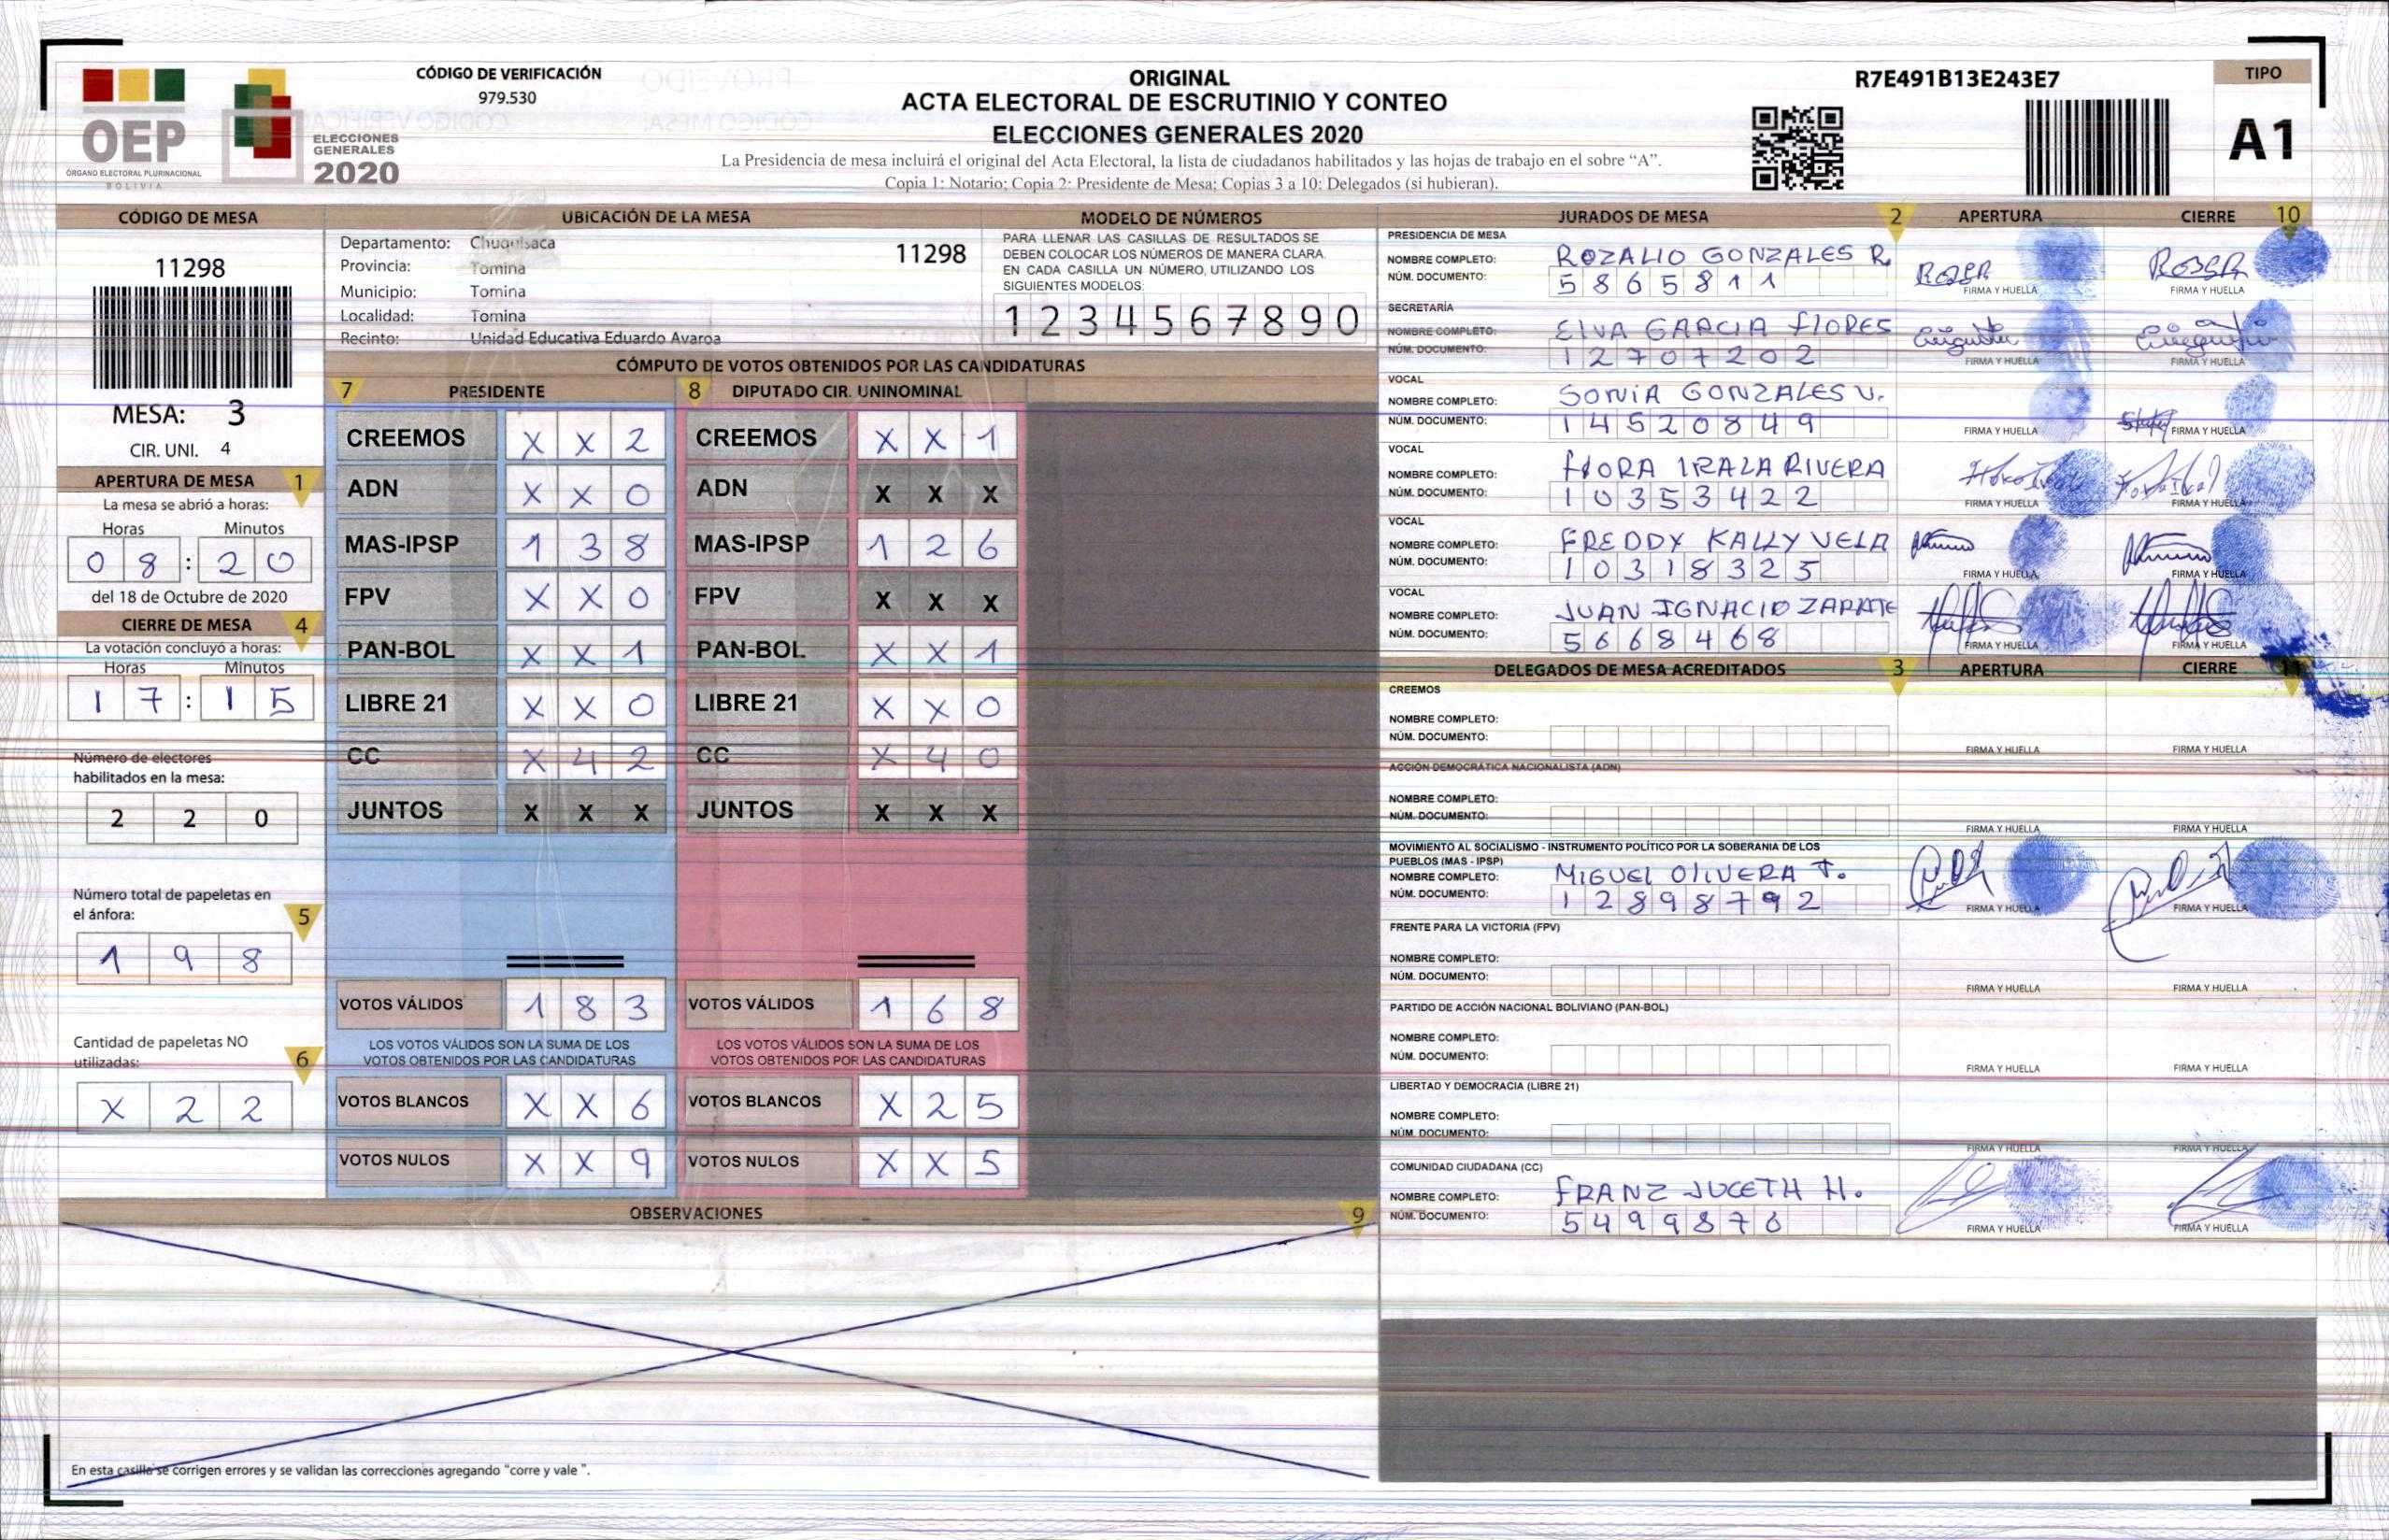 CÓDIGO DE VERIFICACIÓN
979.530
OEP
ÓRGANO ELECTORAL PLURINACIONAL
BOLIVIA
ELECCIONES
GENERALES
2020
ORIGINAL
ACTA ELECTORAL DE ESCRUTINIO Y CONTEO
ELECCIONES GENERALES 2020
La Presidencia de mesa incluirá el original del Acta Electoral, la lista de ciudadanos habilitados y las hojas de trabajo en el sobre “A”.
Copia 1: Notario; Copia 2: Presidente de Mesa; Copias 3 a 10: Delegados (si hubieran).
R7E491B13E243E7
TIPO
A1
CÓDIGO DE MESA
11298
MESA: 3
CIR. UNI. 4
APERTURA DE MESA 1
La mesa se abrió a horas:
Horas Minutos
0 8 : 2 0
del 18 de Octubre de 2020
CIERRE DE MESA 4
La votación concluyó a horas:
Horas Minutos
1 7 : 1 5
Número de electores
habilitados en la mesa:
2 2 0
Número total de papeletas en
el ánfora: 5
1 9 8
Cantidad de papeletas NO
utilizadas: 6
X 2 2
UBICACIÓN DE LA MESA
Departamento: Chuquisaca 11298
Provincia: Tomina
Municipio: Tomina
Localidad: Tomina
Recinto: Unidad Educativa Eduardo Avaroa
MODELO DE NÚMEROS
PARA LLENAR LAS CASILLAS DE RESULTADOS SE
DEBEN COLOCAR LOS NÚMEROS DE MANERA CLARA.
EN CADA CASILLA UN NÚMERO, UTILIZANDO LOS
SIGUIENTES MODELOS:
1 2 3 4 5 6 7 8 9 0
CÓMPUTO DE VOTOS OBTENIDOS POR LAS CANDIDATURAS
7 PRESIDENTE 8 DIPUTADO CIR. UNINOMINAL
CREEMOS X X 2 CREEMOS X X 1
ADN X X 0 ADN X X X
MAS-IPSP 1 3 8 MAS-IPSP 1 2 6
FPV X X 0 FPV X X X
PAN-BOL X X 1 PAN-BOL X X 1
LIBRE 21 X X 0 LIBRE 21 X X 0
CC X 4 2 CC X 4 0
JUNTOS X X X JUNTOS X X X
VOTOS VÁLIDOS 1 8 3 VOTOS VÁLIDOS 1 6 8
LOS VOTOS VÁLIDOS SON LA SUMA DE LOS LOS VOTOS VÁLIDOS SON LA SUMA DE LOS
VOTOS OBTENIDOS POR LAS CANDIDATURAS VOTOS OBTENIDOS POR LAS CANDIDATURAS
VOTOS BLANCOS X X 6 VOTOS BLANCOS X 2 5
VOTOS NULOS X X 9 VOTOS NULOS X X 5
OBSERVACIONES 9
En esta casilla se corrigen errores y se validan las correcciones agregando “corre y vale ”.
JURADOS DE MESA 2 APERTURA CIERRE 10
PRESIDENCIA DE MESA
NOMBRE COMPLETO: ROZALIO GONZALES R.
NÚM. DOCUMENTO: 5 8 6 5 8 1 1
FIRMA Y HUELLA FIRMA Y HUELLA
SECRETARÍA
NOMBRE COMPLETO: ElVA GARCIA flORES
NÚM. DOCUMENTO: 1 2 7 0 7 2 0 2
FIRMA Y HUELLA FIRMA Y HUELLA
VOCAL
NOMBRE COMPLETO: SONIA GONZALES V.
NÚM. DOCUMENTO: 1 4 5 2 0 8 4 9
FIRMA Y HUELLA FIRMA Y HUELLA
VOCAL
NOMBRE COMPLETO: flORA IRALA RIVERA
NÚM. DOCUMENTO: 1 0 3 5 3 4 2 2
FIRMA Y HUELLA FIRMA Y HUELLA
VOCAL
NOMBRE COMPLETO: FREDDY KALLY VELA
NÚM. DOCUMENTO: 1 0 3 1 8 3 2 5
FIRMA Y HUELLA FIRMA Y HUELLA
VOCAL
NOMBRE COMPLETO: JUAN IGNACIO ZARATE
NÚM. DOCUMENTO: 5 6 6 8 4 6 8
FIRMA Y HUELLA FIRMA Y HUELLA
DELEGADOS DE MESA ACREDITADOS 3 APERTURA CIERRE 11
CREEMOS
NOMBRE COMPLETO:
NÚM. DOCUMENTO:
FIRMA Y HUELLA FIRMA Y HUELLA
ACCIÓN DEMOCRÁTICA NACIONALISTA (ADN)
NOMBRE COMPLETO:
NÚM. DOCUMENTO:
FIRMA Y HUELLA FIRMA Y HUELLA
MOVIMIENTO AL SOCIALISMO - INSTRUMENTO POLÍTICO POR LA SOBERANIA DE LOS
PUEBLOS (MAS - IPSP)
NOMBRE COMPLETO: MIGUEL OlIVERA T.
NÚM. DOCUMENTO: 1 2 8 9 8 7 9 2
FIRMA Y HUELLA FIRMA Y HUELLA
FRENTE PARA LA VICTORIA (FPV)
NOMBRE COMPLETO:
NÚM. DOCUMENTO:
FIRMA Y HUELLA FIRMA Y HUELLA
PARTIDO DE ACCIÓN NACIONAL BOLIVIANO (PAN-BOL)
NOMBRE COMPLETO:
NÚM. DOCUMENTO:
FIRMA Y HUELLA FIRMA Y HUELLA
LIBERTAD Y DEMOCRACIA (LIBRE 21)
NOMBRE COMPLETO:
NÚM. DOCUMENTO:
FIRMA Y HUELLA FIRMA Y HUELLA
COMUNIDAD CIUDADANA (CC)
NOMBRE COMPLETO: FRANZ JUCETH H.
NÚM. DOCUMENTO: 5 4 9 9 8 7 6
FIRMA Y HUELLA FIRMA Y HUELLA